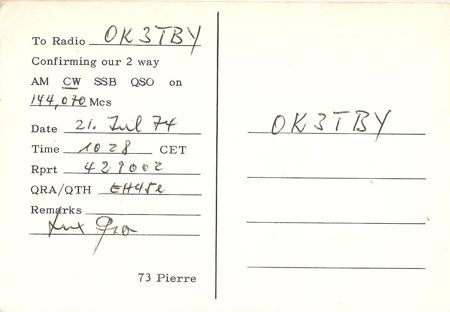 To Radio OK3TBY
Confirming our 2 way
AM CW SSB QSO on
144,070 Mcs
Date 21. Jul 74
Time 1028 CET
Rprt 429002
QRA/QTH
Remarks
73 Pierre
OK3TBY